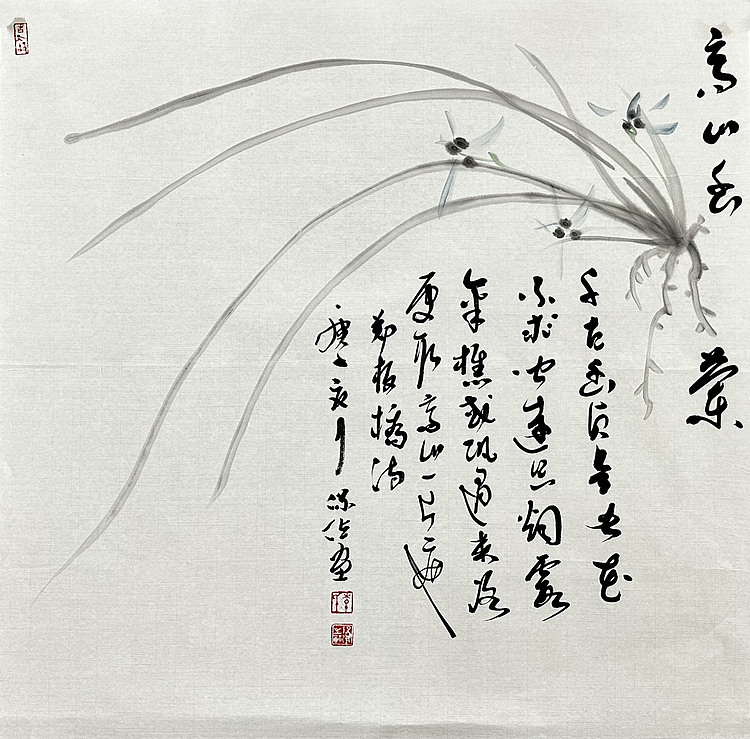 高山幽蘭
千古幽貞是此花
不求聞達只烟霞
采樵或恐通来路
更取高山一片遮
郑板橋詩
庚子夏月 画